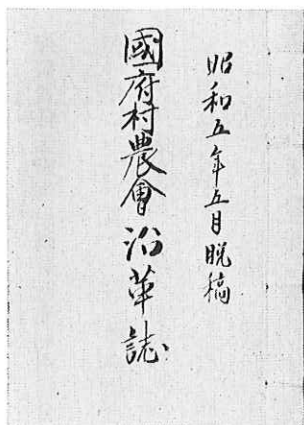 昭和五年五月脱稿
國府村農會沿革誌